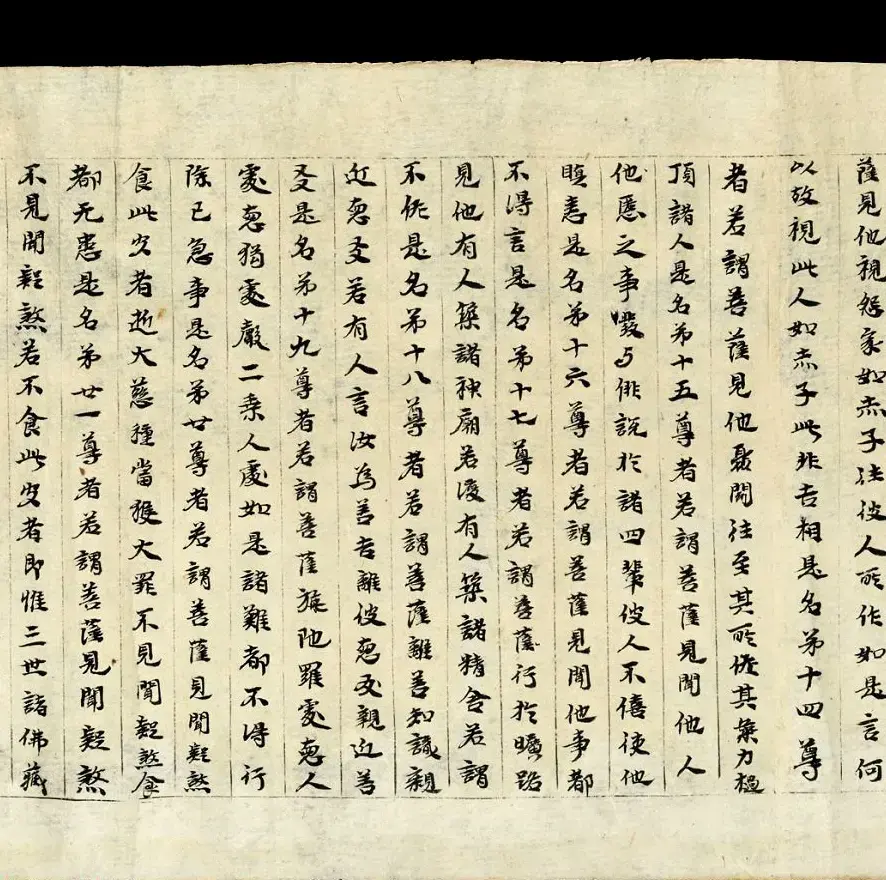 薩見他視怨家如赤子往彼人所作如是言何
以故視此人如赤子此非吉相是名弟十四尊
者若謂菩薩見他鬪往至其所佐其氣力檛
頂諸人是名弟十五尊者若謂菩薩見聞他人
他匿之事發与俳說於諸四輩彼人不僖使他
瞋恚是名弟十六尊者若謂菩薩見聞他事都
不得言是名弟十七尊者若謂菩薩行於曠路
見他有人築諸神廟若復有人築諸精舍若謂
不佐是名弟十八尊者若謂菩薩離善知識親
近惡友若有人言汝為善吉離彼惡友親近善
友是名弟十九尊者若謂菩薩旃陁羅處惡人
處惡猘處嚴二乘人處如是諸難都不得行
除己急事是名弟廿尊者若謂菩薩見聞疑煞
食此宍者逝大慈種當獲大罪不見聞疑煞食
都无患是名弟廿一尊者若謂菩薩見聞疑煞
不見聞疑煞若不食此宍者即惟三世諸佛藏